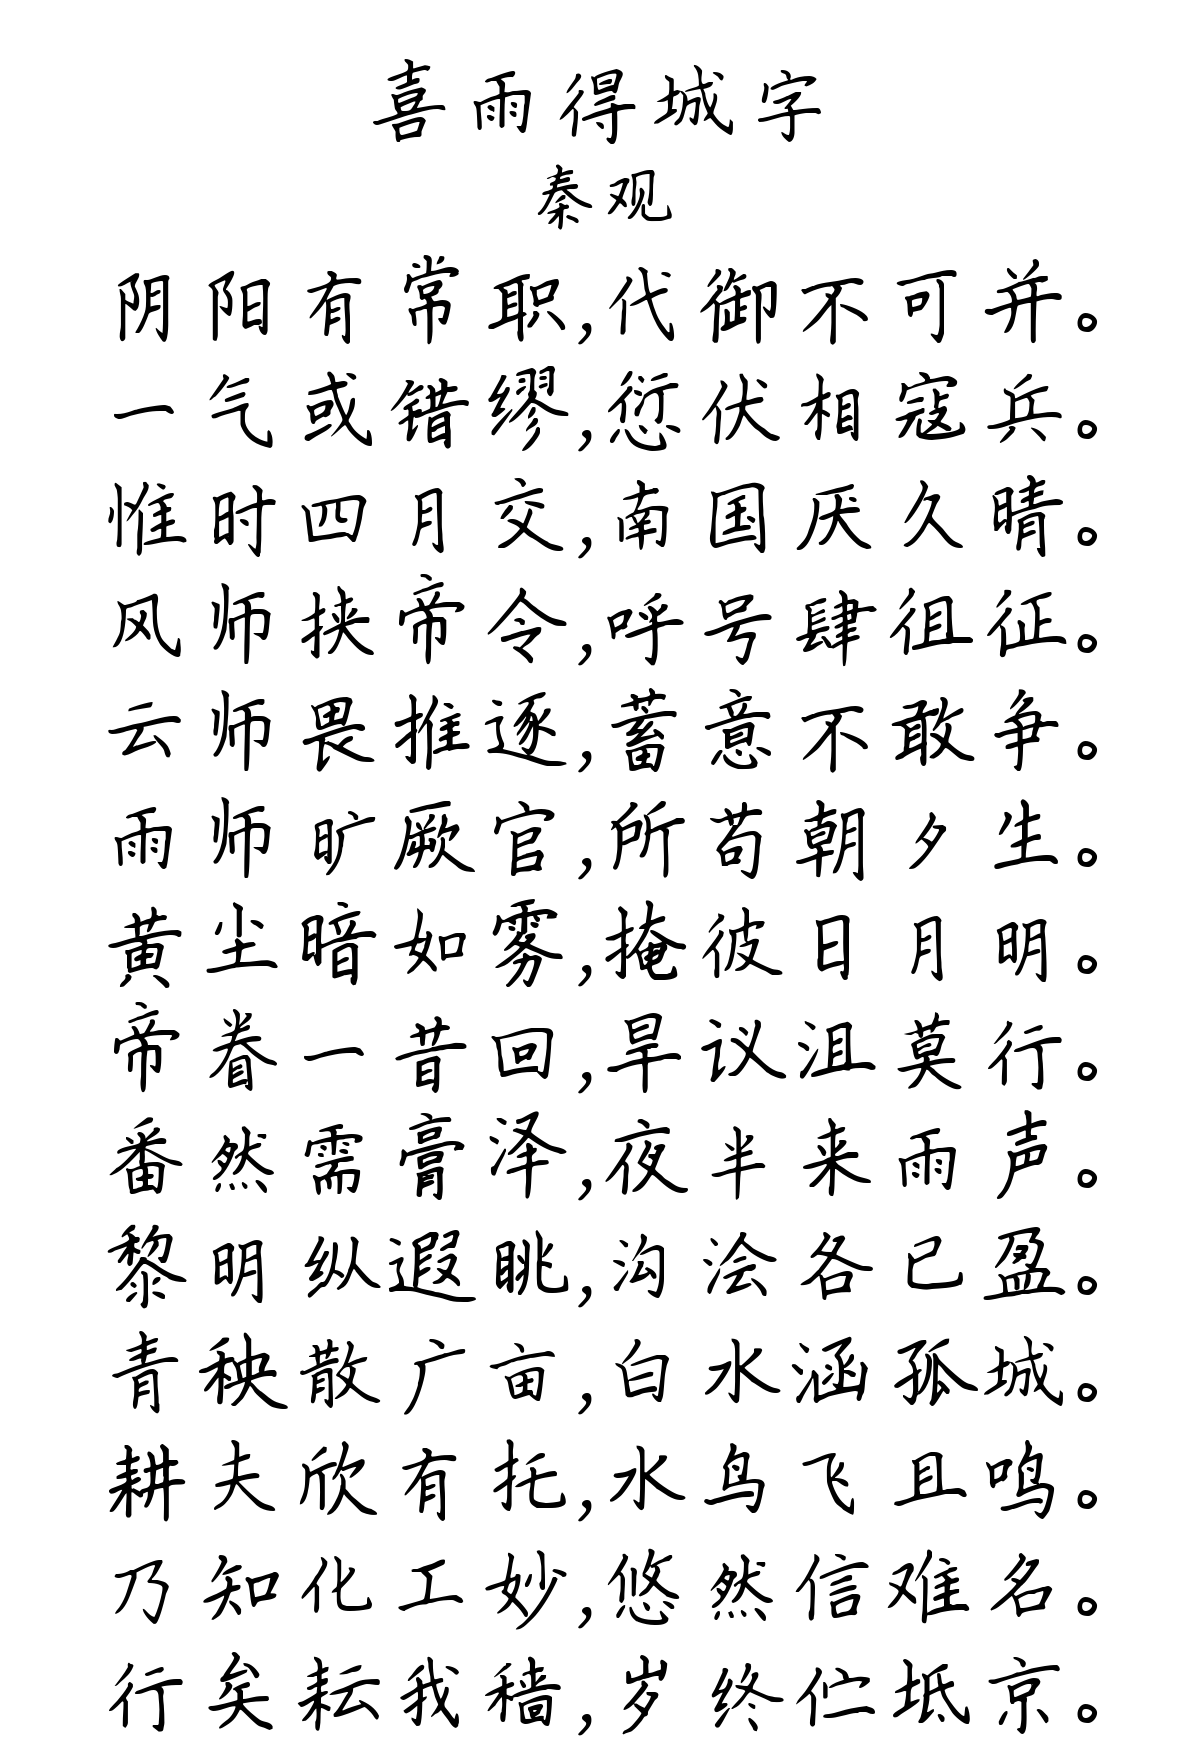 喜雨得城字
秦观
阴阳有常职,代御不可并。
一气或错缪,愆伏相寇兵。
惟时四月交,南国厌久晴。
风师挟帝令,呼号肆徂征。
云师畏推逐,蓄意不敢争。
雨师旷厥官,所苟朝夕生。
黄尘暗如雾,掩彼日月明。
帝眷一昔回,旱议沮莫行。
番然需膏泽,夜半来雨声。
黎明纵遐眺,沟浍各已盈。
青秧散广亩,白水涵孤城。
耕夫欣有托,水鸟飞且鸣。
乃知化工妙,悠然信难名。
行矣耘我穑,岁终伫坻京。